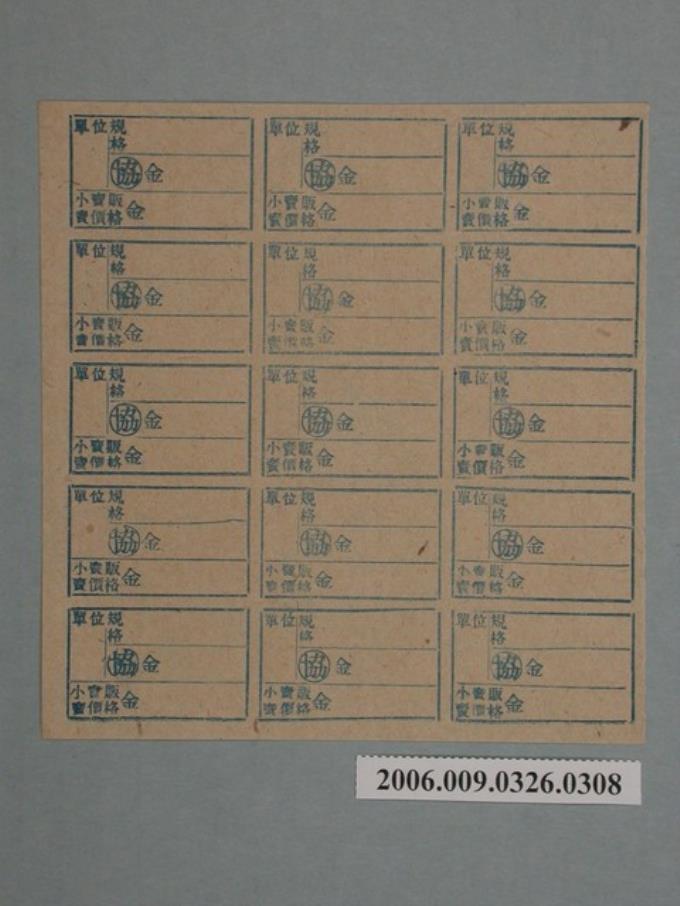 單位規格
協金
小賣販
賣價格金
單位規格
協金
小賣販
賣價格金
單位規格
協金
小賣販
賣價格金
單位規格
協金
小賣販
賣價格金
單位規格
協金
小賣販
賣價格金
單位規格
協金
小賣販
賣價格金
單位規格
協金
小賣販
賣價格金
單位規格
協金
小賣販
賣價格金
單位規格
協金
小賣販
賣價格金
單位規格
協金
小賣販
賣價格金
單位規格
協金
小賣販
賣價格金
單位規格
協金
小賣販
賣價格金
單位規格
協金
小賣販
賣價格金
單位規格
協金
小賣販
賣價格金
單位規格
協金
小賣販
賣價格金
2006.009.0326.0308